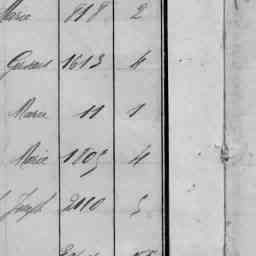 Marie 818 2
1613 4
Marie 11 1
Marie 1205 4
Joseph 2010 5